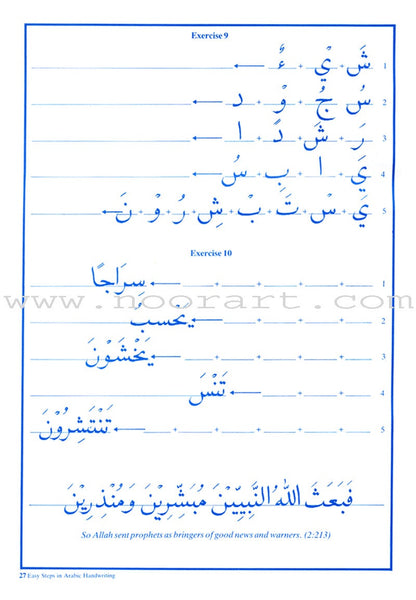 Exercise 9
1 شَ + يْ + ءٌ
2 سُ + جُ + وْ + د
3 رَ + شَ + دً + ا
4 يَ + ا + بِ + سُ
5 يَ + سْ + تَ + بْ + شِ + رُ + وْ + نَ
Exercise 10
1 + + + + سِرَاجًا
2 + + + + يَحْسَبُ
3 + + + + يَخْشَوْنَ
4 + + + تَنْسَ
5 + + + + + + تَنْتَشِرُوْنَ
www.noorart.com
فَبَعَثَ اللهُ النَّبِيِّيْنَ مُبَشِّرِيْنَ وَمُنْذِرِيْنَ
So Allah sent prophets as bringers of good news and warners. (2:213)
27 Easy Steps in Arabic Handwriting